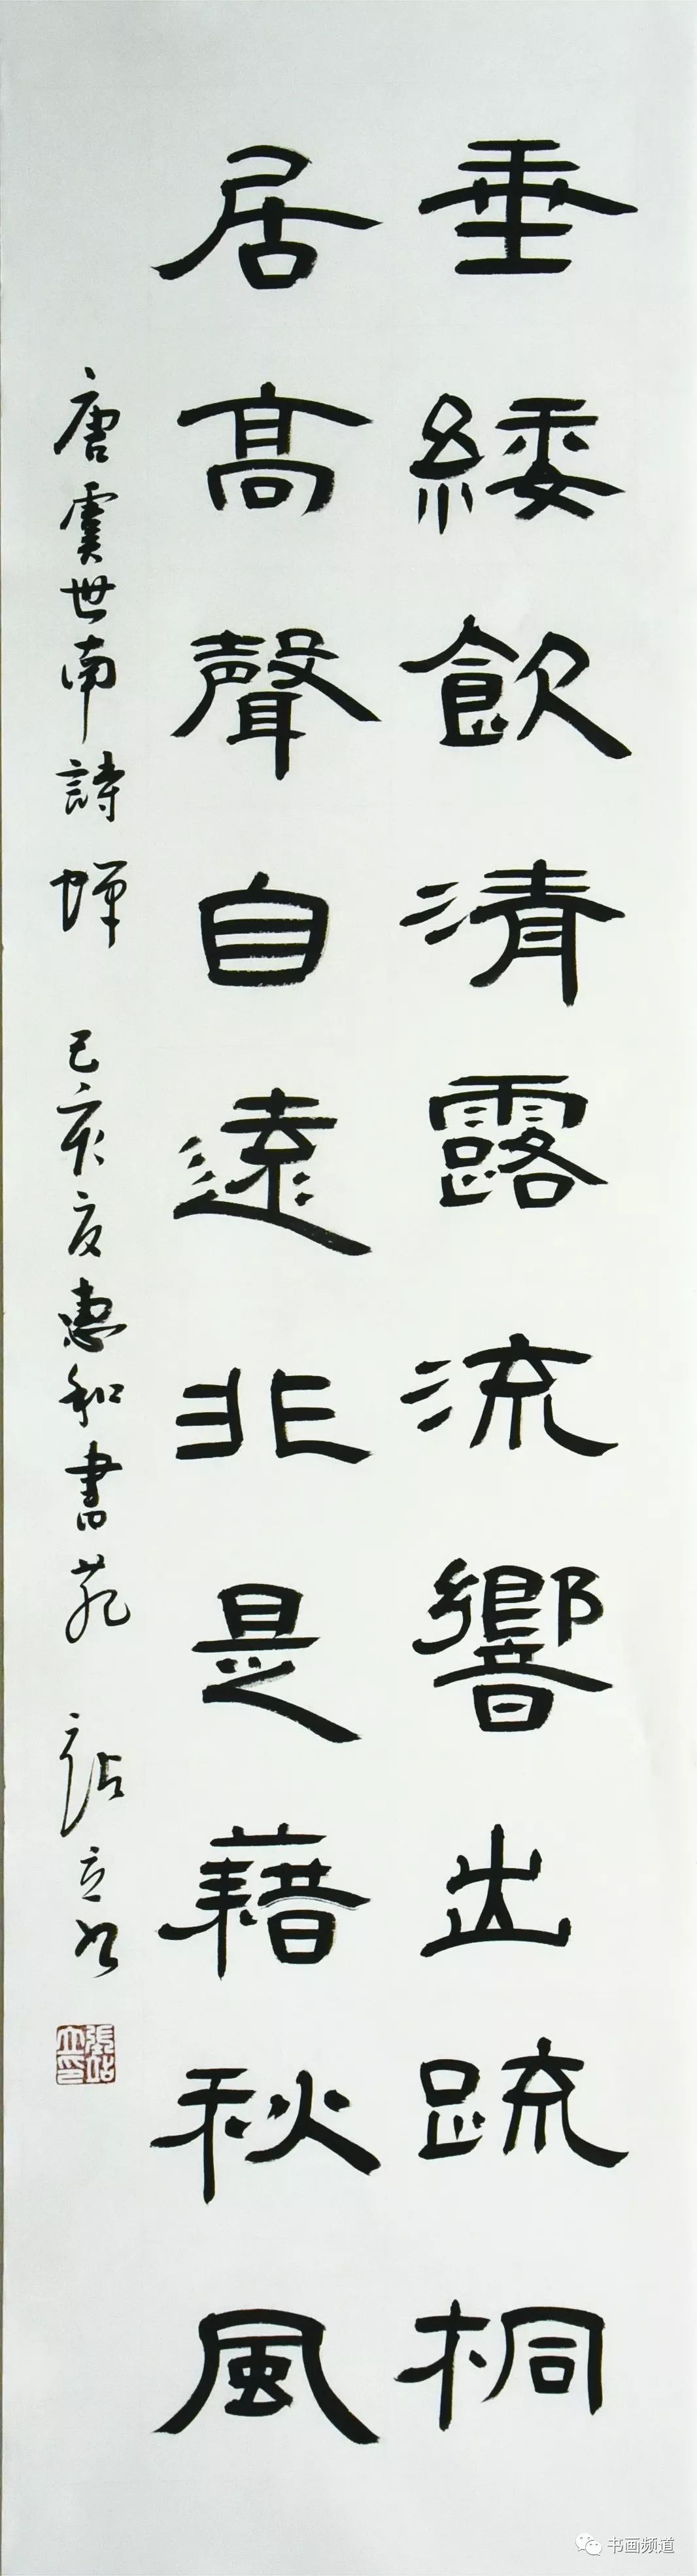 垂緌飲清露流響出䟽桐
居高聲自遠非是藉秋風
唐虞世南詩蝉 己亥夏惠和書苑 站立书
張站立印
书画频道